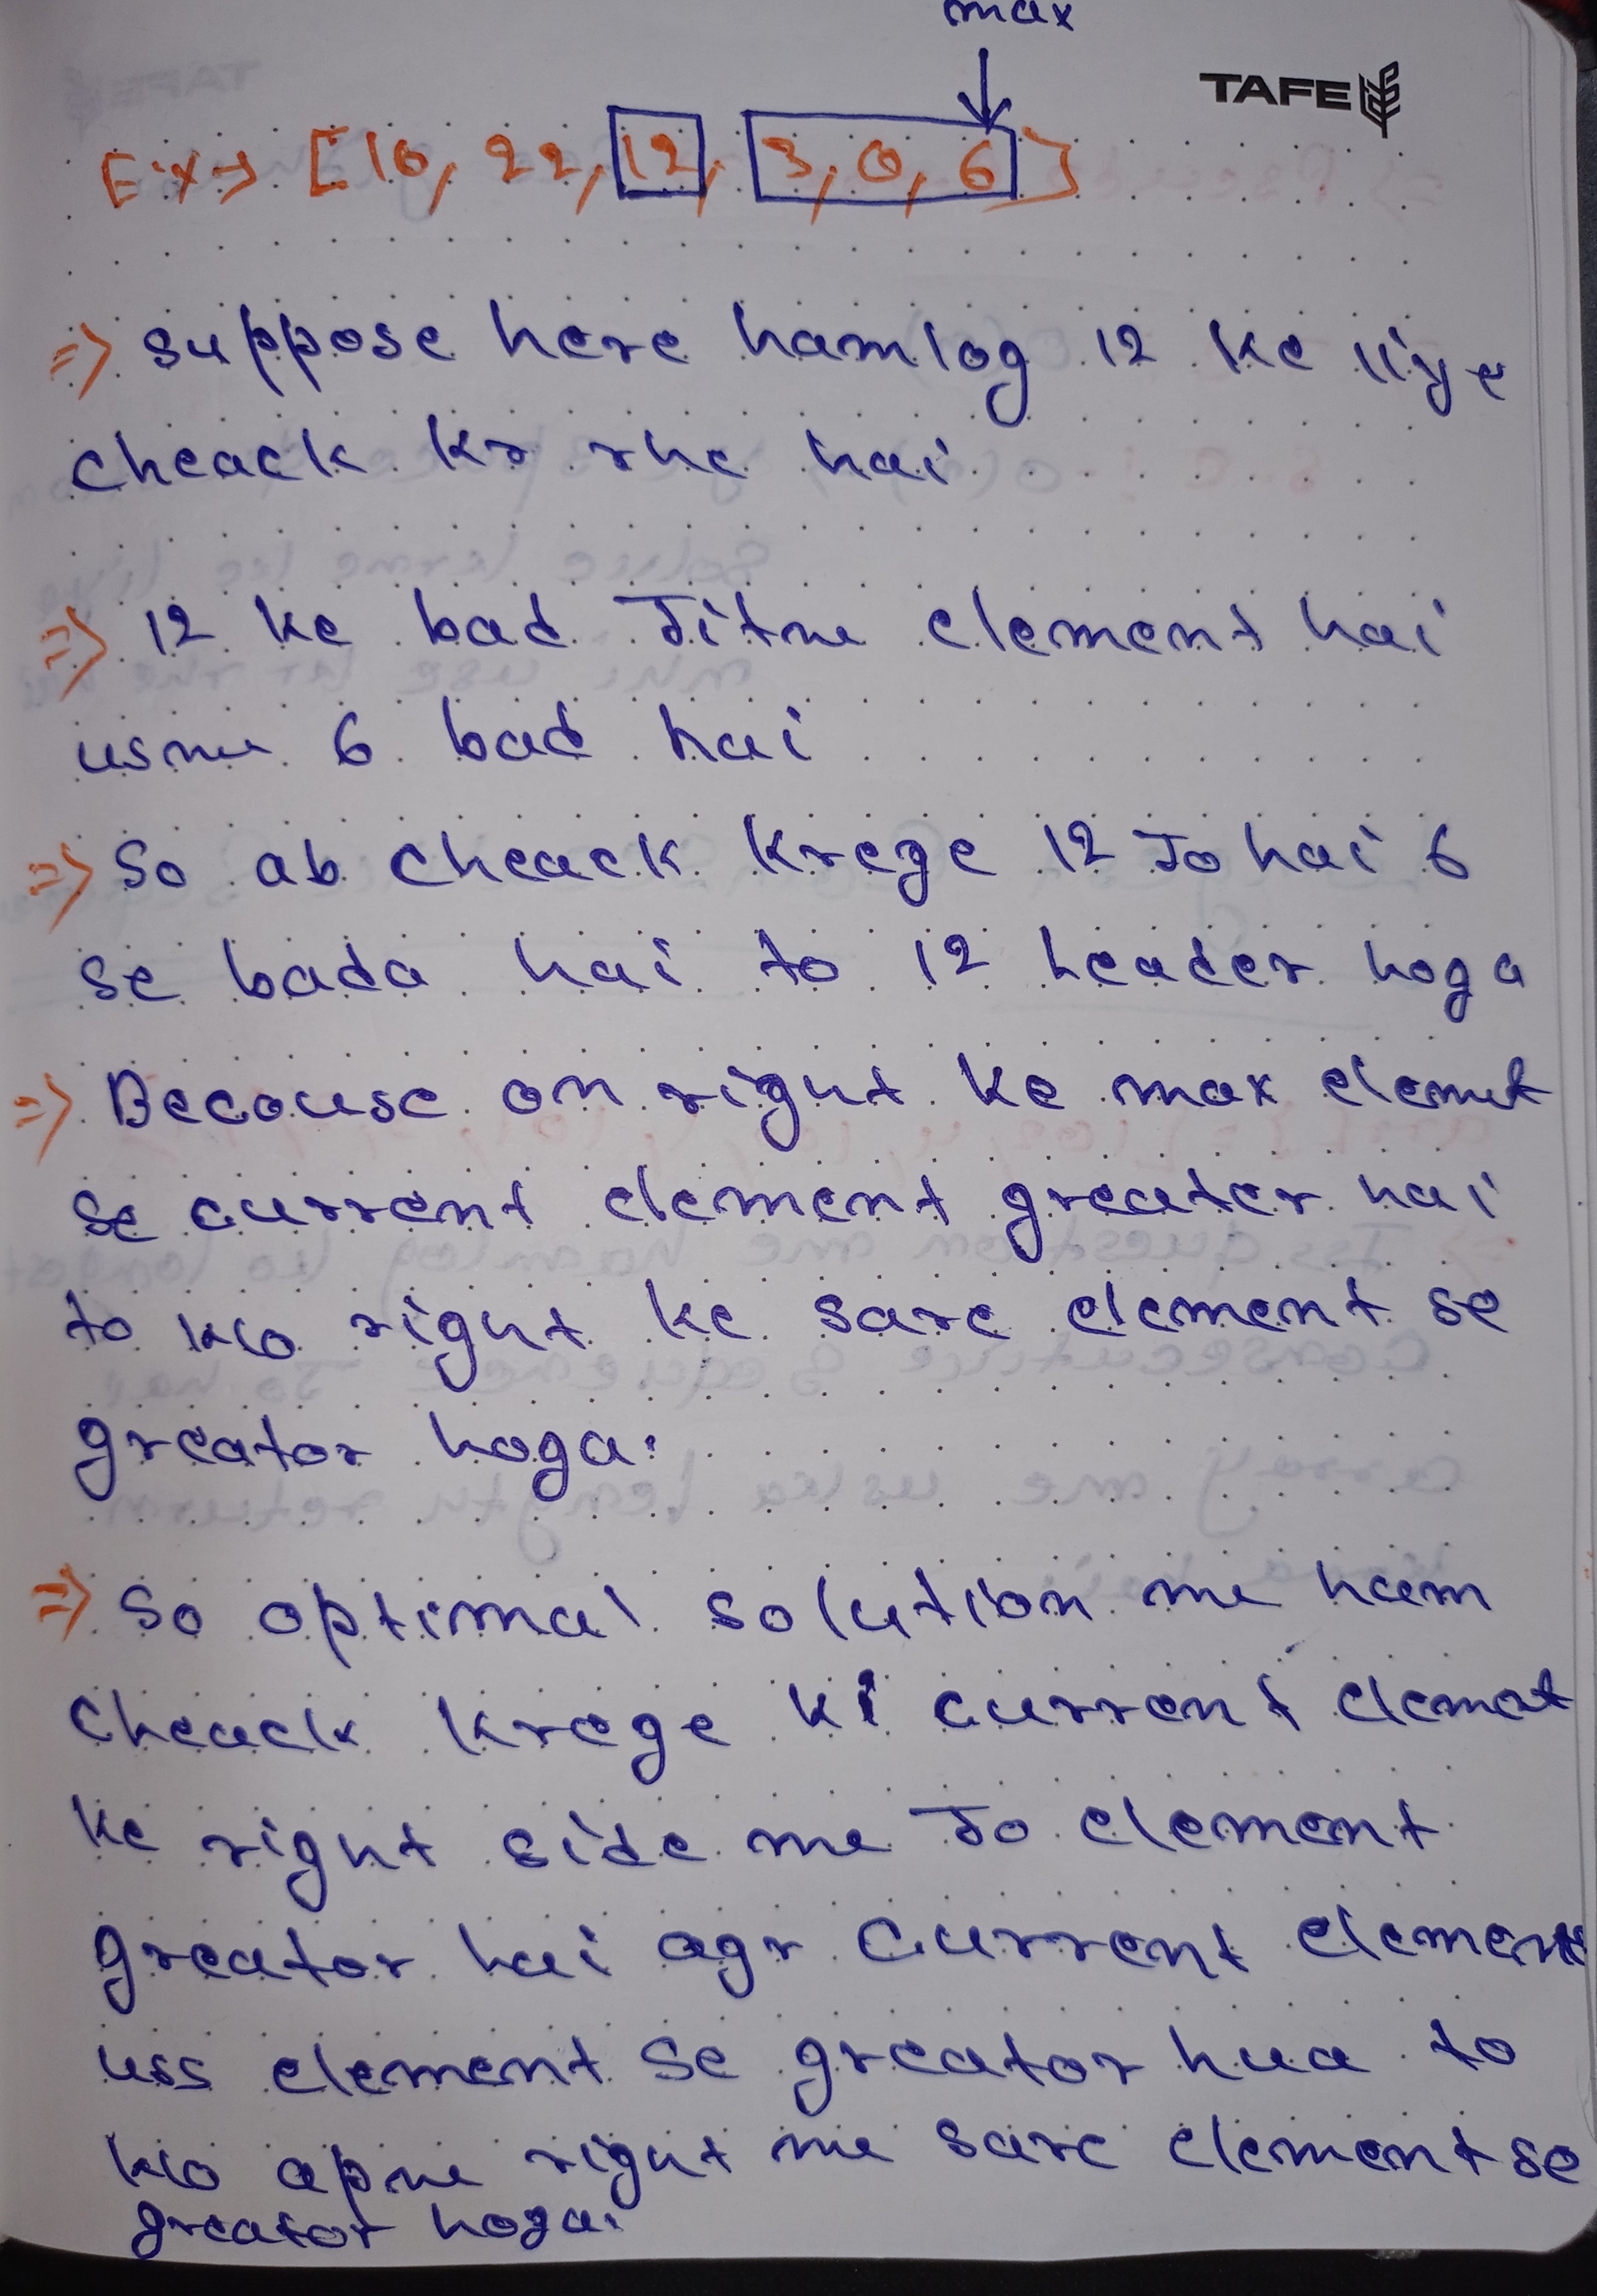 max
TAFE
Ex → [10, 22, 12, 3, 0, 6]
=> suppose here hamlog 12 ke liye
cheack kr rhe hai
=> 12 ke bad Jitne element hai
usme 6 bad hai
=> So ab cheack krege 12 Jo hai 6
se bada hai to 12 Leader hoga
=> Becouse on right ke max elemnt
se current element greater hai
to wo right ke sare element se
greator hoga.
=> So optimal solution me ham
cheack krege ki current elemnt
ke right side me Jo element
greator hai agr current element
uss element se greator hua to
wo apne right me sare element se
greator hoga.